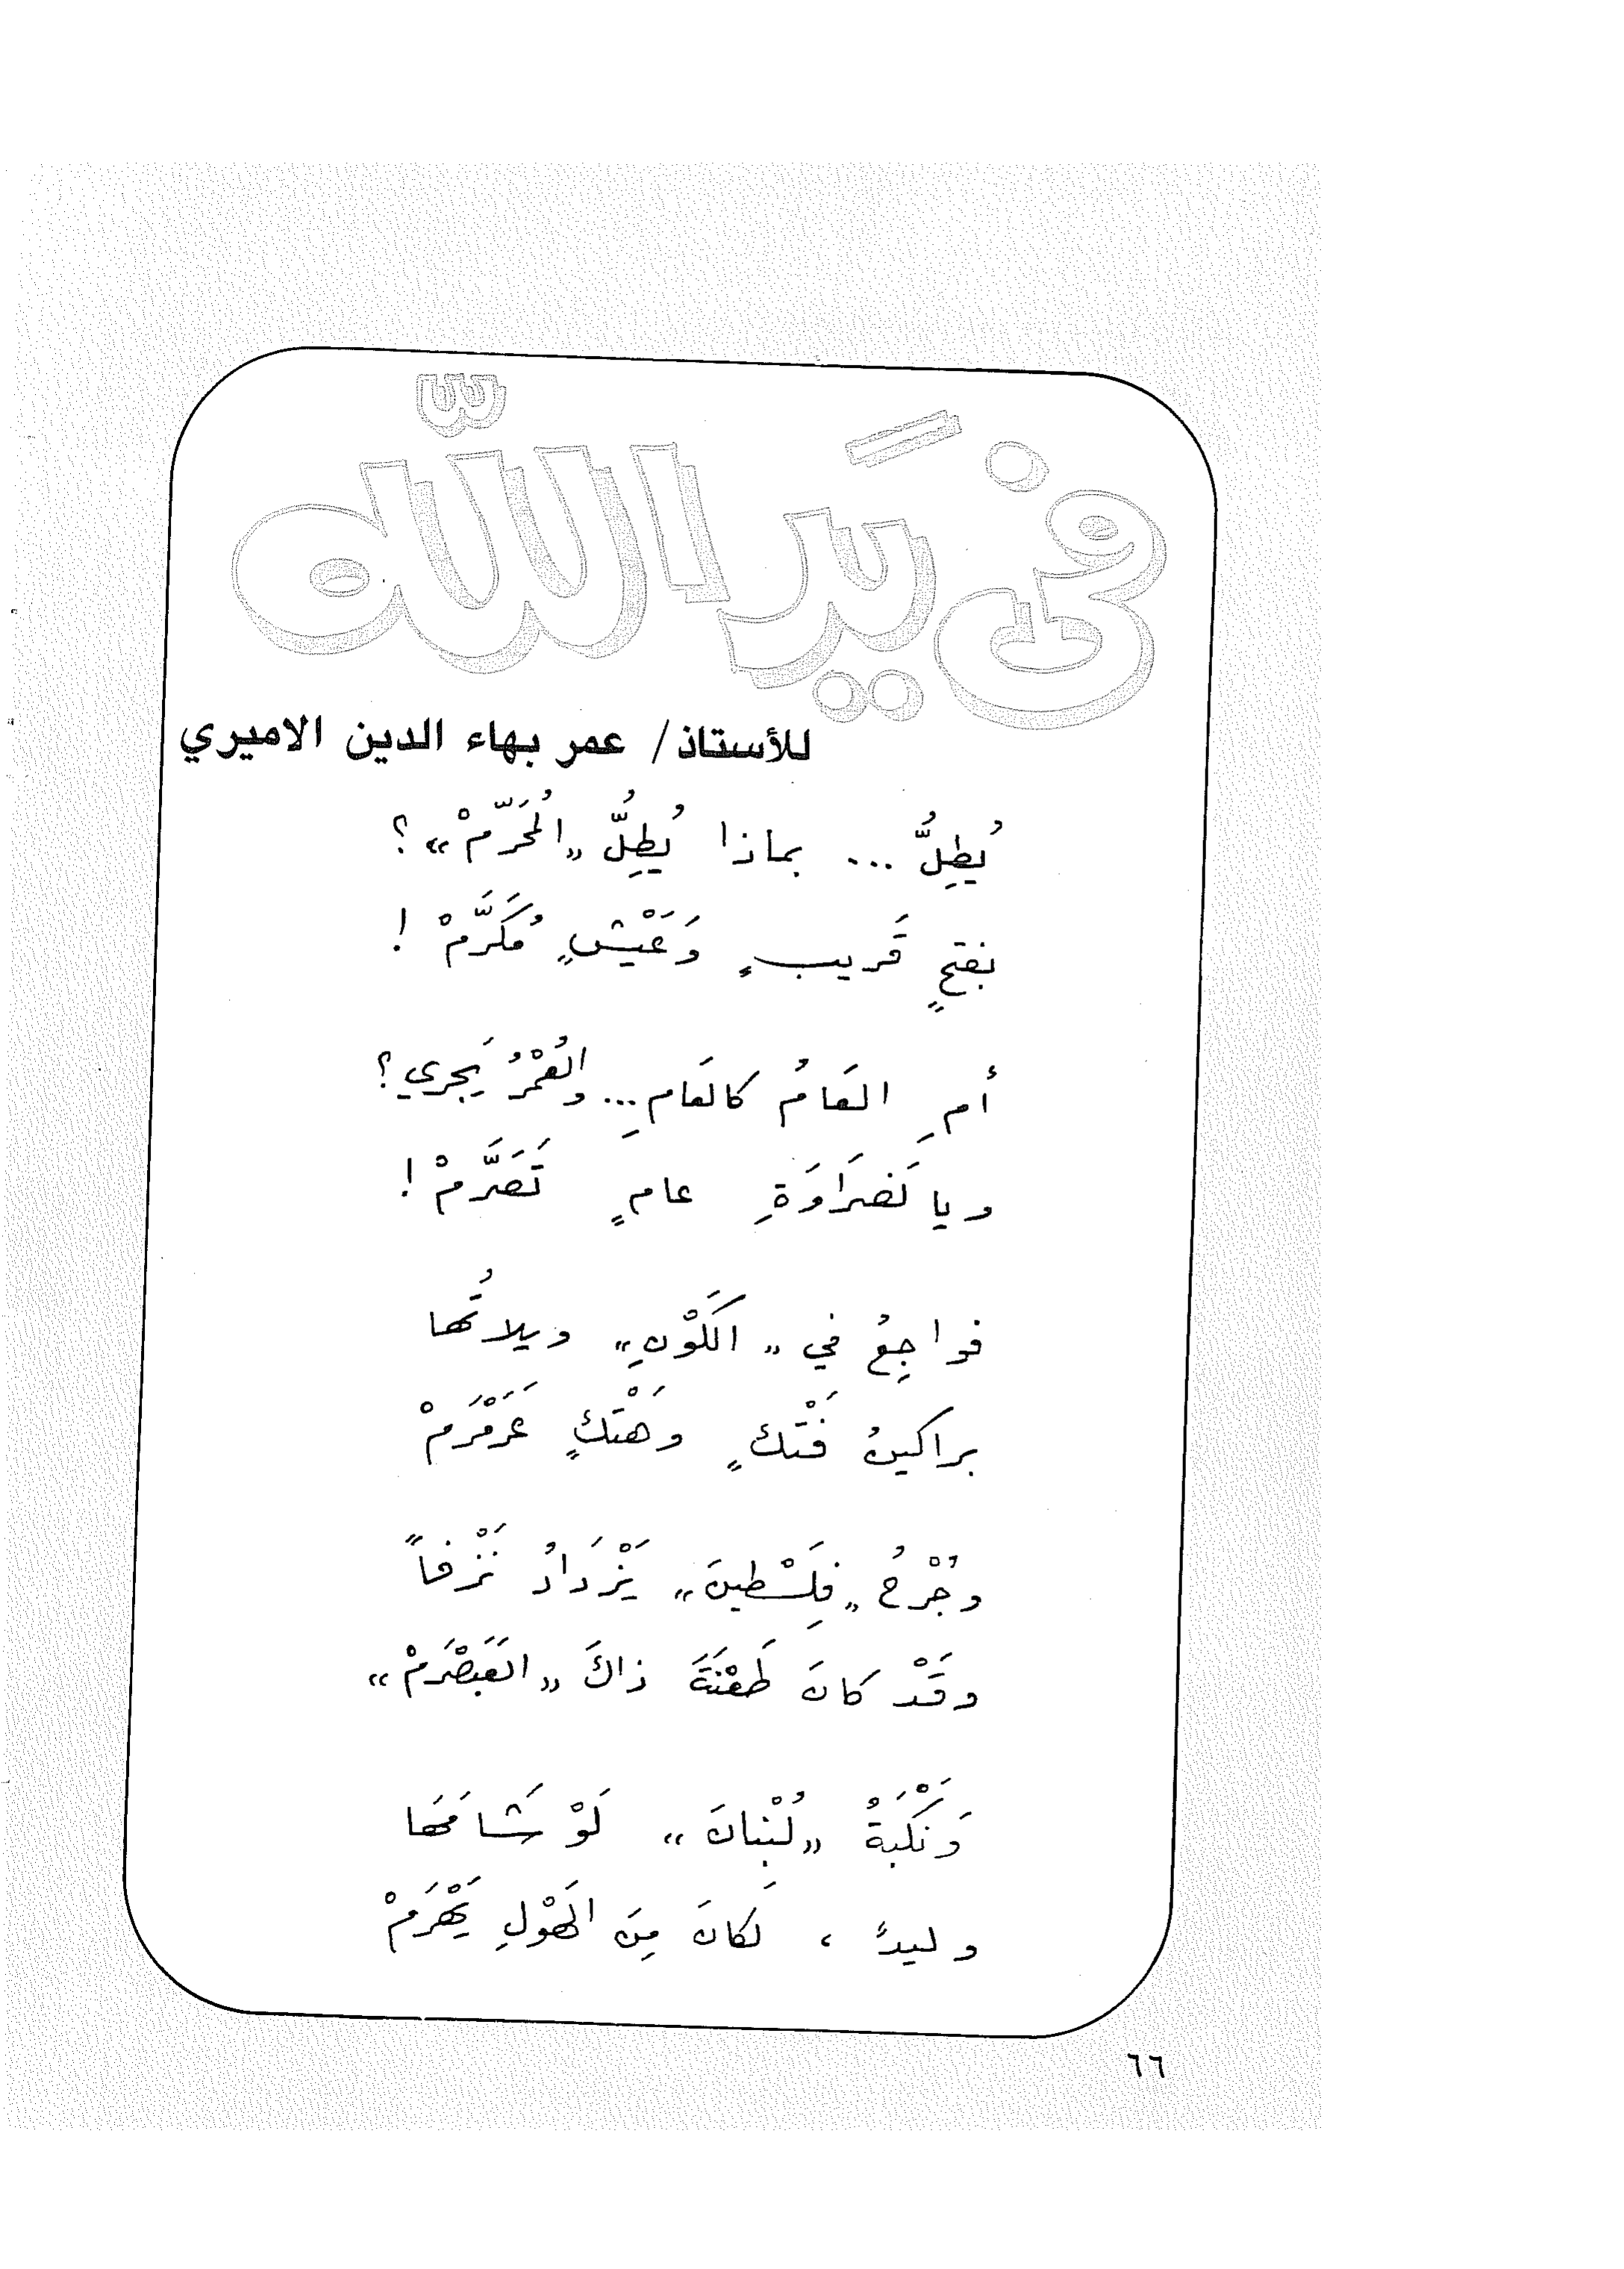 في يَد اللّه
للأستاذ/ عمر بهاء الدين الاميري
يُطِلُّ ... بماذا يُطِلُّ «المُحَرَّمْ» ؟
بفتحٍ قَريبٍ وَعَيْشٍ مُكَرَّمْ !
أمِ العَامُ كالعَامِ ... والعُمْرُ يَجري ؟
ويا لَضَرَاوَةِ عامٍ تَصَرَّمْ !
فواجِعُ في «الكَوْنِ» ويلاتُها
براكينُ فَتْكٍ وهَتْكٍ عَرَمْرَمْ
وجُرْحُ «فِلَسْطينَ» يَزْدَادُ نَزْفاً
وقَدْ كانَ طَعْنَةَ ذاكَ «العَبَصْرَمْ»
وَنَكْبَةُ «لُبْنِانَ» لَوْ شَامَهَا
وليدٌ ، لَكانَ مِنَ الهَوْلِ يَهْرَمْ
٦٦